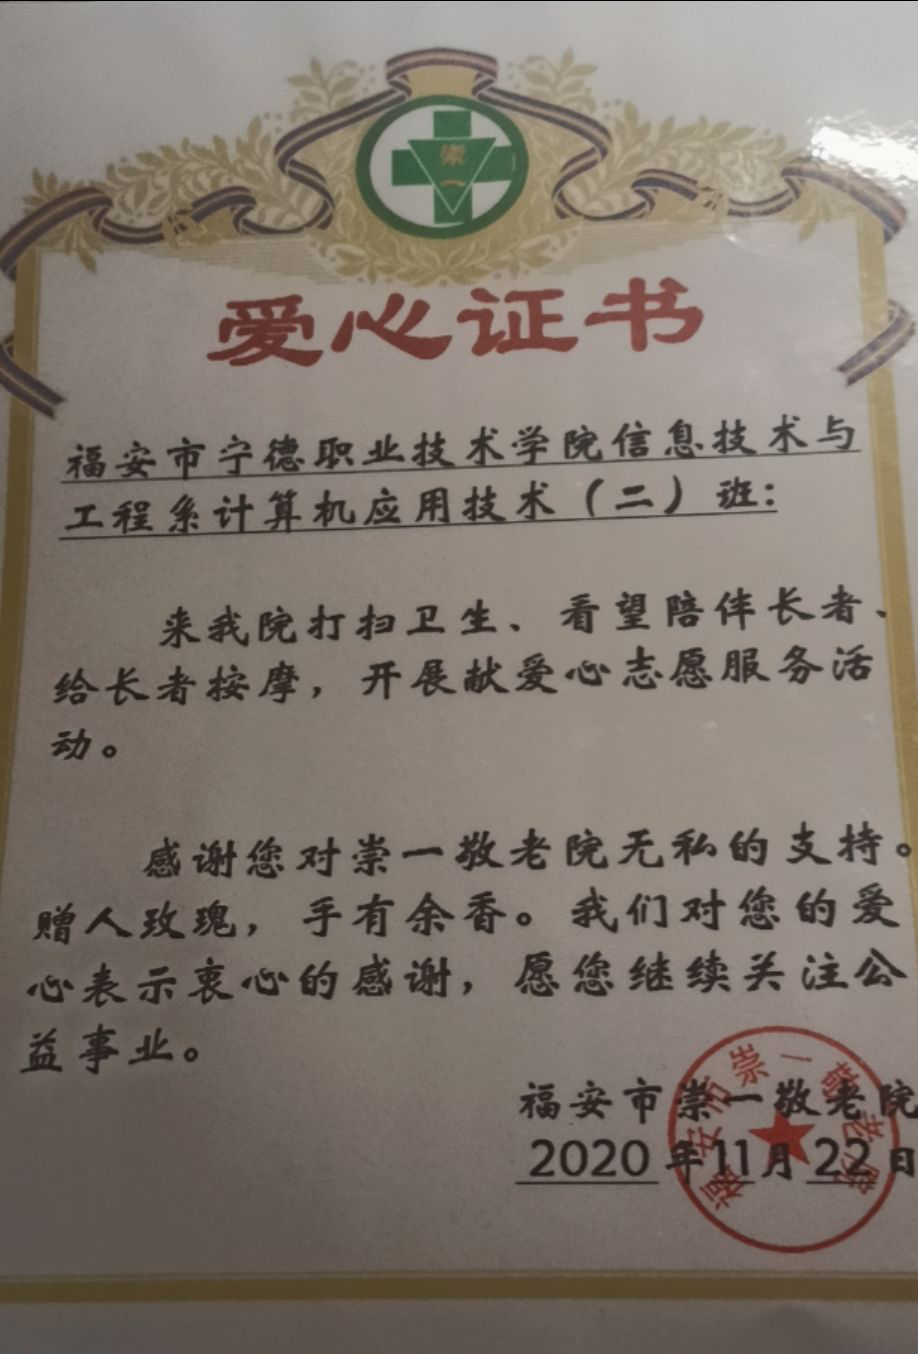 崇
一
爱心证书
福安市宁德职业技术学院信息技术与
工程系计算机应用技术（二）班：
来我院打扫卫生、看望陪伴长者、
给长者按摩，开展献爱心志愿服务活
动。
感谢您对崇一敬老院无私的支持。
赠人玫瑰，手有余香。我们对您的爱
心表示衷心的感谢，愿您继续关注公
益事业。
福安市崇一敬老院
2020年11月22日
福安市崇一敬老院